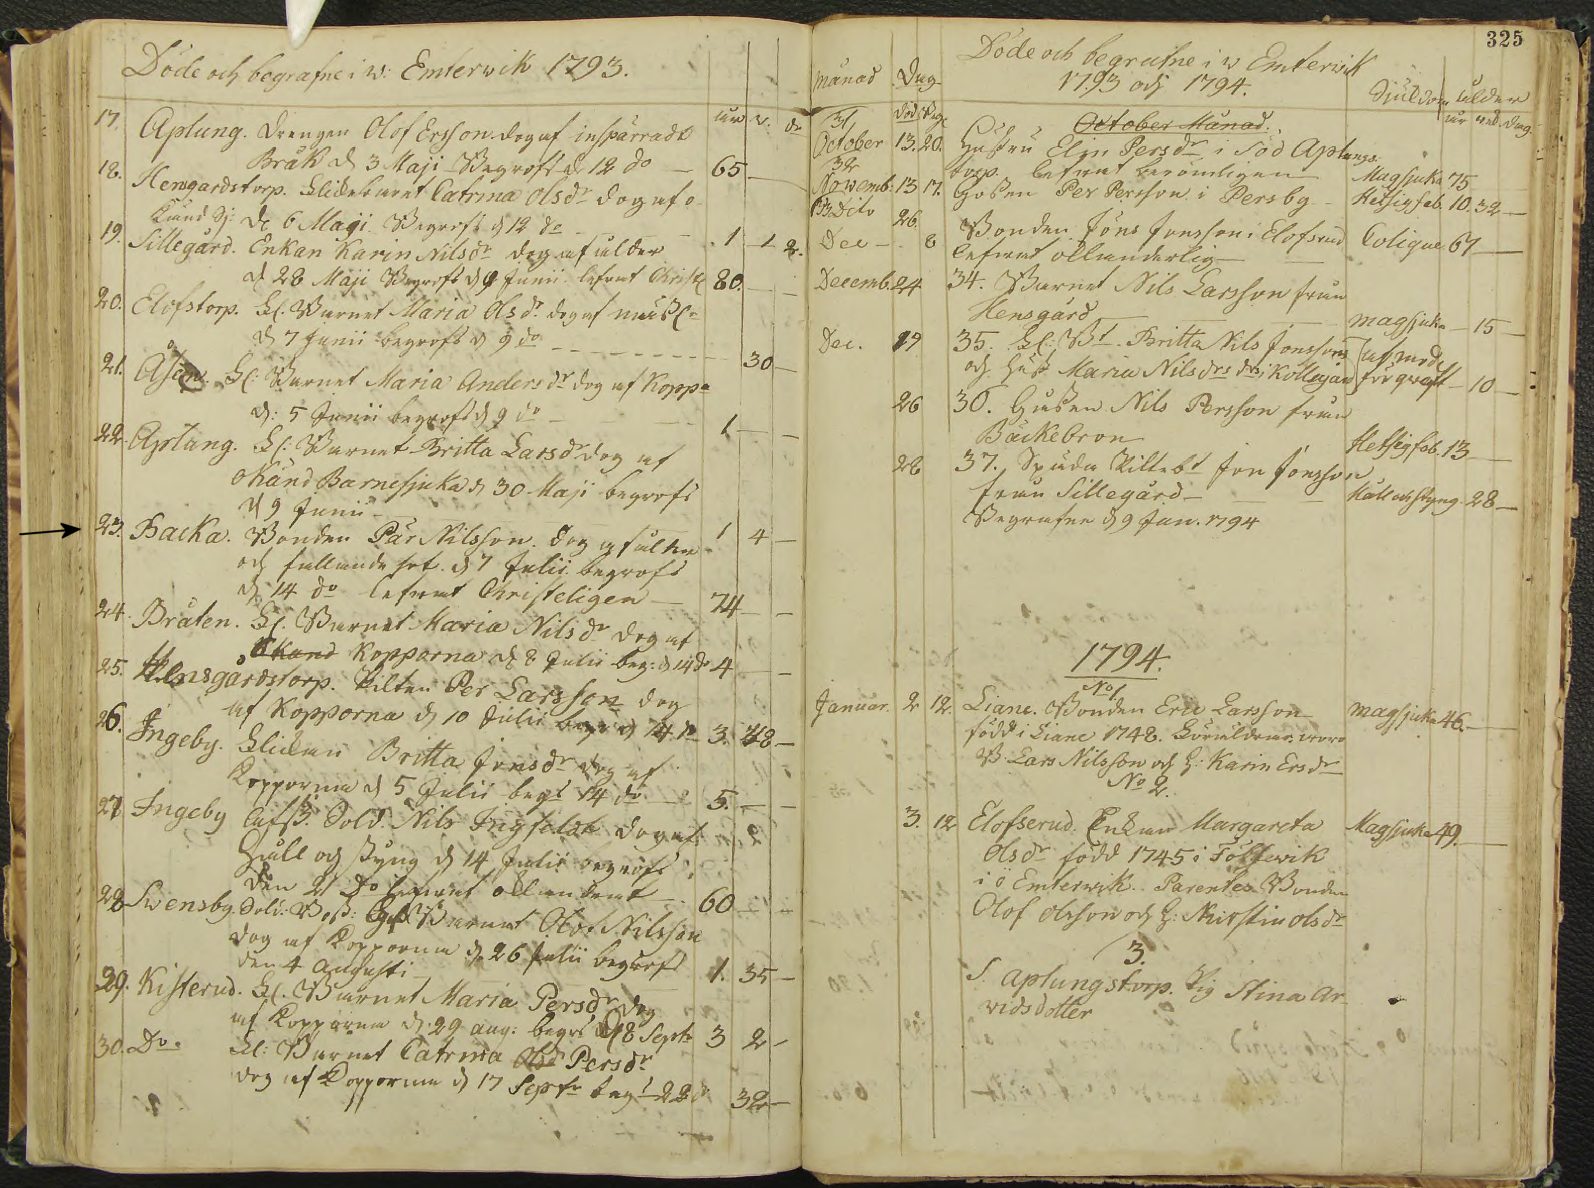 Döde och begrafne i W: Emterwik 1793.
17. Aplung. Drengen Olof Ersson. dog af inspärradt
Bråk d 3 Maji Begrofs d 12 do — 65 —
18. Hensgardstorp. Flickebarnet Catrina Olsdr dog af o-
känd Sj: d 6 Maji Begrofs d 12 do 1 1 2.
19. Sillegård. Enkan Karin Nilsdr dog af ålder
d 28 Maji Begrofs d 9 Junii lefwat Christl 80.
20. Elofstorp. Sl. Barnet Maria Olsdr dog af
d 7 Junii begrofs d 9 do 30 —
21. Åsen. Sl: Barnet Maria Andersdr dog af Kopp-
d: 5 Junii begrofs d 9 do 1 —
22. Aplang. Sl: Barnet Britta Larsdr dog af
okänd Barnesjuka d 30 Maji begrofs
d 9 Junii — 1 4 —
23. Backa. Bonden Pär Nilsson. dog af ålder
och fallande sot. d 7 Julii begrofs
d 14 do lefwat Christeligen — 74 —
24. Bråten. Sl. Barnet Maria Nilsdr dog af
Kopporna d 8 Julii beg: d 14 do 4 —
25. Hensgardstorp. Pilten Per Larsson dog
af Kopporna d 10 Julii begr d 14 do 3. 48 —
26. Ingeby. Flickan Britta Jonsdr dog af
Kopporna d 5 Julii begs 14 do — 5. —
27 Ingeby Afsk. Sold. Nils dog af
Håll och styng d 14 Julii begrofs
den 21 do lefwat 60 —
28 Swensby. Sold. Barnet Olof Nilsson
dog af Kopporna d 26 Julii begrofs
den 4 Augusti — 1. 35 —
29. Kisterud. Sl. Barnet Maria Persdr dog
af Kopporna d. 29 aug: begrs d 8 Septr 3 2 —
30. Do. Sl: Barnet Catrina Olsdr Persdr
dog af Kopporna d 17 Septr begs 22 d 32 —
325
Döde och begrafne i W Emterwik
1793 och 1794.
Månad Dag Sjukdom ålder
död Begr. år Mån. dag
October Månad.
31
October 13. 20. Hustru Elin Persdr i Söd Aplungs-
torp. lefwat berömligen — Magsjuka 75
32
Novemb: 13 17. Gossen Per Persson i Persby — Hetsigfeb. 10. 32 —
33 Dito 26.
Dec — 8 Bonden Jöns Jonsson i Elofsrud Colique 67 —
lefwat ollanderlig —
Decemb. 24 34. Barnet Nils Larsson från
Hensgård — magsjuka — 15 —
Dec. 19 35. Sl: Bt. Britta Nils Jonssons
och Hust Maria Nilsdrs dr i Kollerjan — 10 —
26 36. Gossen Nils Persson från
Bäckebron Hetsigfeb. 13 —
28 37. Jon Jonsson
från Sillegård — Håll och styng. 28 —
Begrafen d 9 Jan. 1794
1794.
No 1.
Januar. 2 12. Liane. Bonden Eric Larsson magsjuka 46. —
född i Liane 1748. Föräldrar woro
B. Lars Nilsson och H: Karin Ersdr
No 2.
3. 12 Elofserud. Enkan Margareta Magsjuka 49. —
Olsdr född 1745 i Tolfwik
i Ö Emterwik. Parentes Bonden
Olof Olsson och H: Kirstin Olsdr
3.
S. Aplungstorp. Pig Stina Ar-
vidsdotter